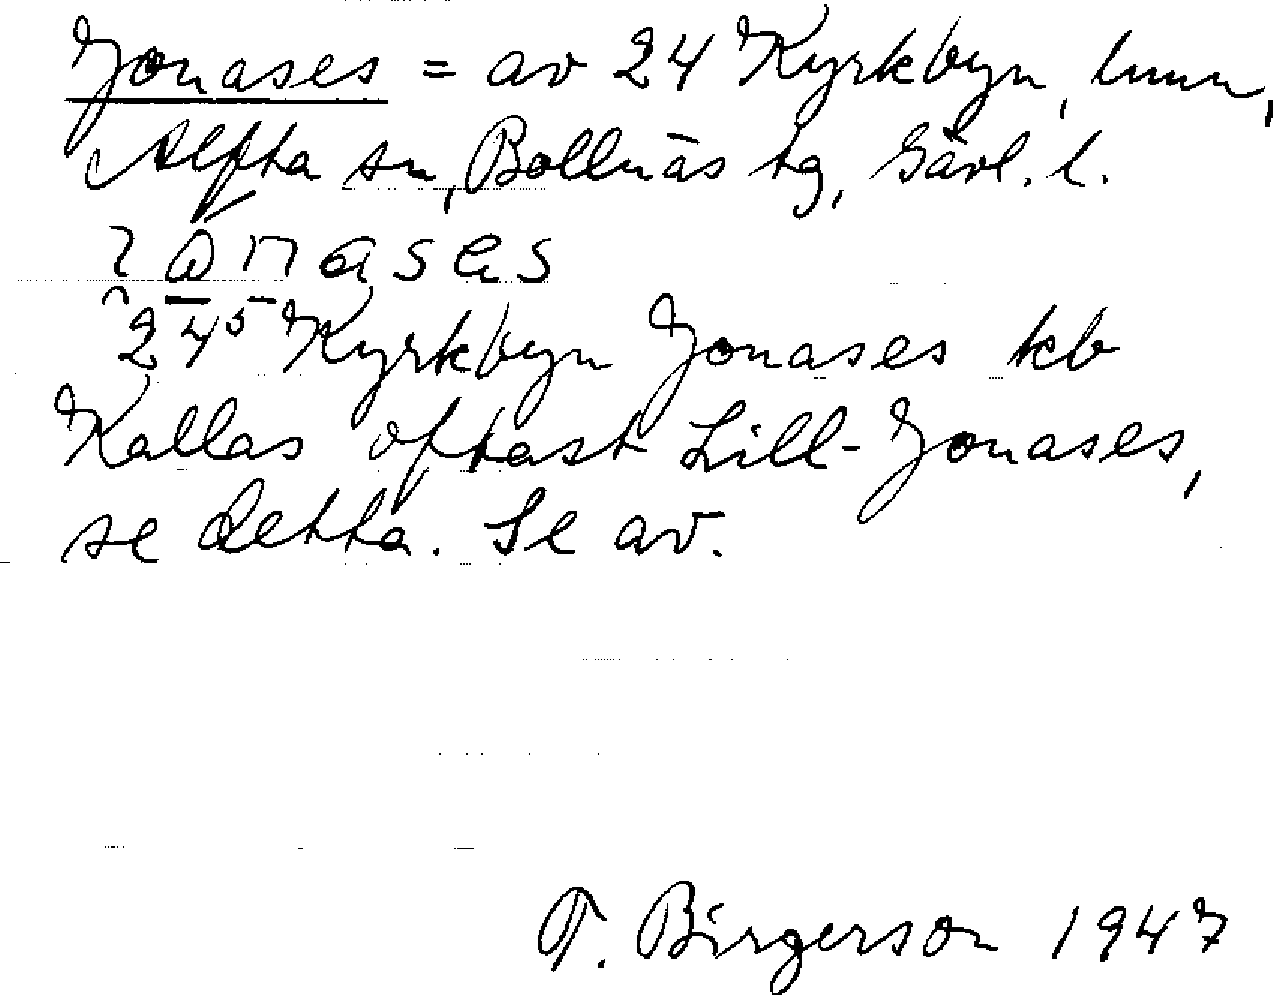 Jonases = av 24 Kyrkbyn, hmn,
Alfta sn, Bollnäs tg, Gävl. l.
24⁵ Kyrkbyn Jonases kb
Kallas oftast Lill-Jonases,
se detta. Se av.
T. Birgerson 1947